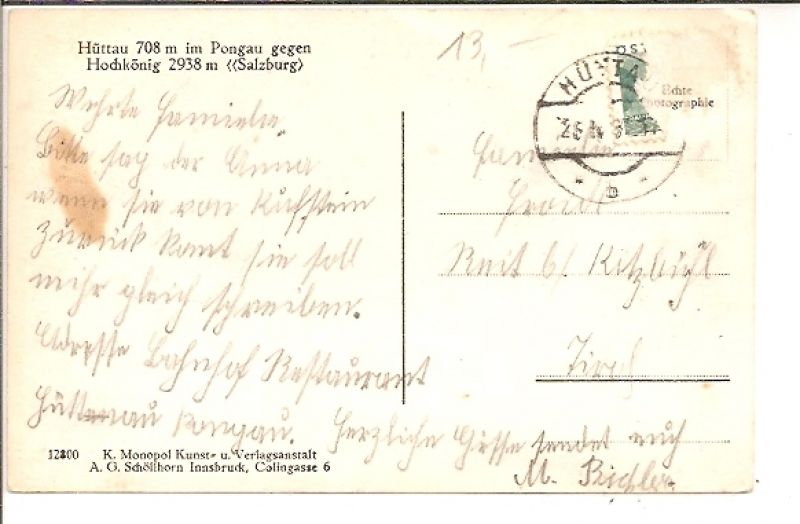 Hüttau 708 m im Pongau gegen
Hochkönig 2938 m ((Salzburg)
13,-
HÜTTA
26
b
Echte
Photographie
Wehrte Familie
Bitte sag der Anna
wenn sie von Kufstein
zurück komt sie soll
mihr gleich schreiben.
Adresse Bahnhof Restaurant
Hüttenau Pongau. Herzliche Grüsse sendet euch
Familie
Reit b/ Kitzbühl
Tirol
12800 K. Monopol Kunst- u. Verlagsanstalt
A. G. Schöllhorn Innsbruck, Colingasse 6